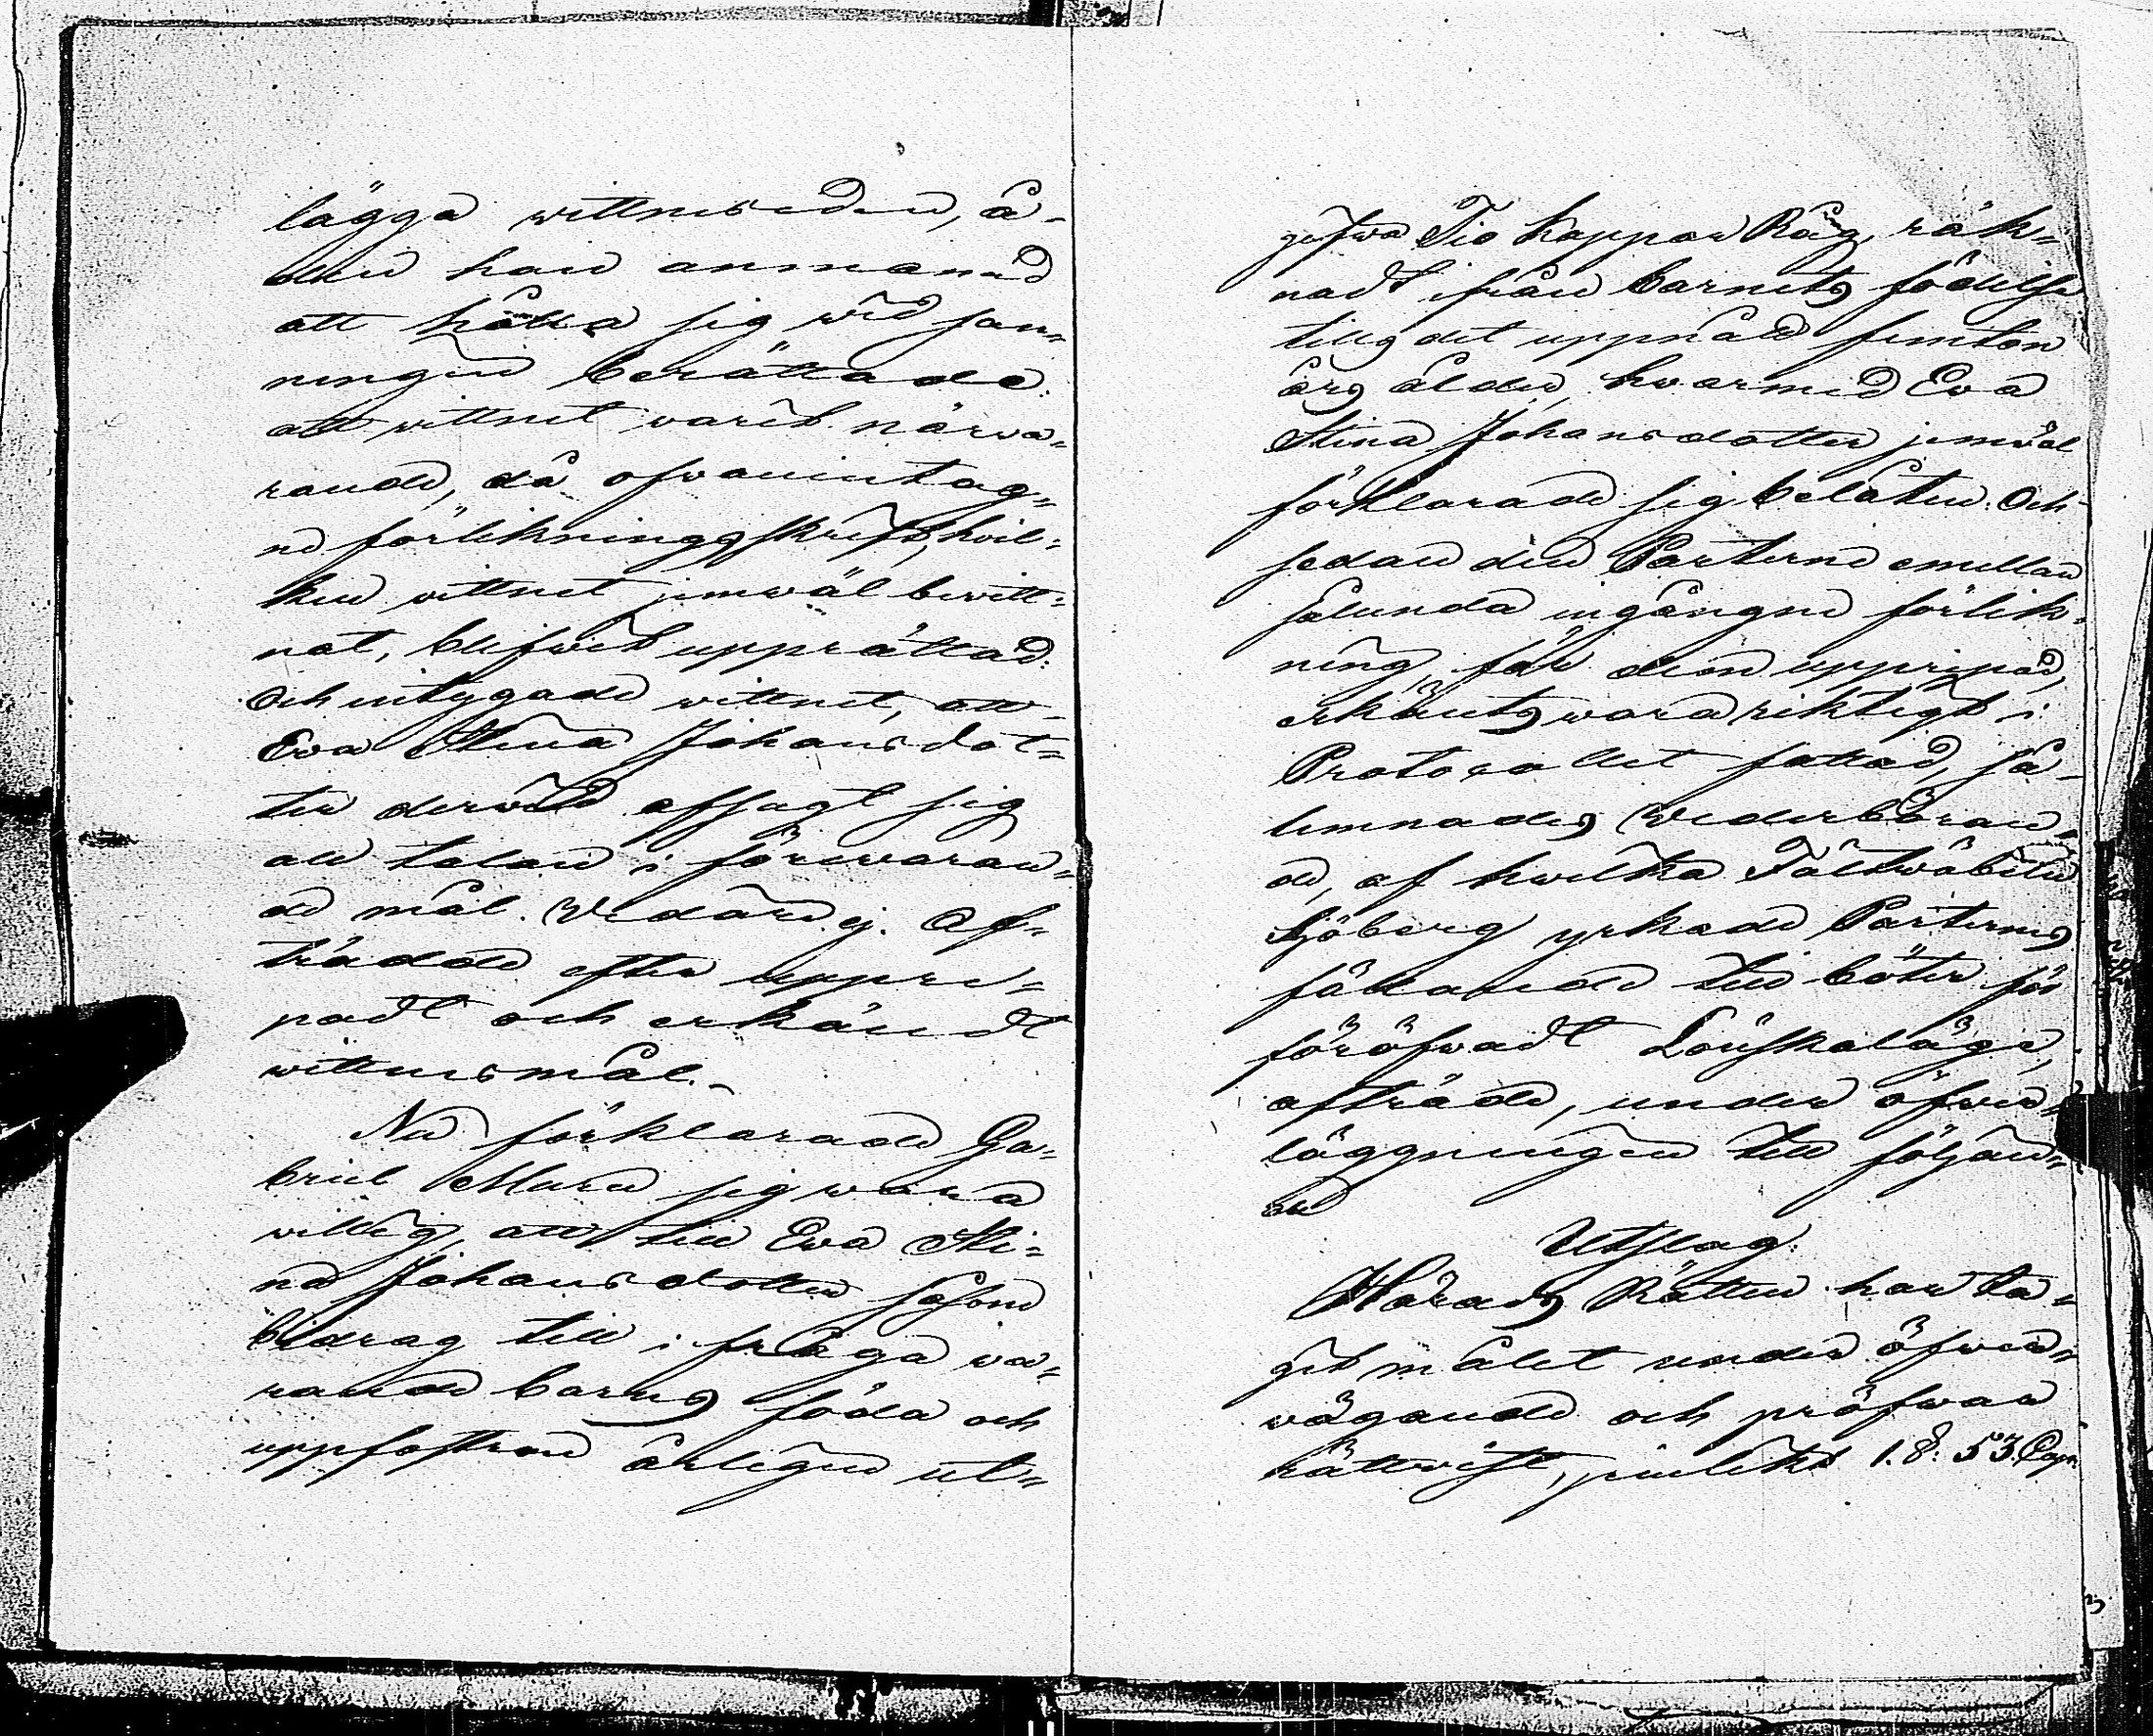 lägga wittneseden, å-
den han anmanad
att hålla sig wid san-
ningen berättade:
att wittnet varit närva-
rande, då ofwanintag-
ne förlikningsskrift, hvil-
ken vittnet jemwäl bevitt-
nat, blifwit upprättad:
Och intygade wittnet, att
Eva Stina Johansdot-
ter derwid afsagt sig
all talan i förevaran-
de mål. Wedare ej. Af-
trädde efter uppre-
padt och erkändt
wittnesmål.-
Nu förklarade Ga-
briel Murd sig wara
willig, att till Eva Sti-
na Johansdotter såsom
bidrag till i fråga wa-
rande barns föda och
uppfostran årligen ut-
gifwa Tio kappar Råg, räk-
nadt ifrån barnets födelse
tills det uppnått femton
års ålder, hvarmed Eva
Stina Johansdotter jemwäl
förklarade sig belåten: Och
sedan den Parterne emellan
sålunda ingångne förlik-
ning, får den uppripad,
erkänts wara riktigt i
Protocollet fattad, få-
lemnades Wederböran-
de, af hwilka Fältwäbelen
Sjöberg yrkade Parternes
fällande till böter för
föröfwadt Lönskaläge,
afträde, under öfwer-
läggningen till följan-
de
Utslag:
Härads Rätten har ta-
git målet under öfwer-
vägande och pröfwar
rättvist, jemlikt 1. §: 53. Cap.